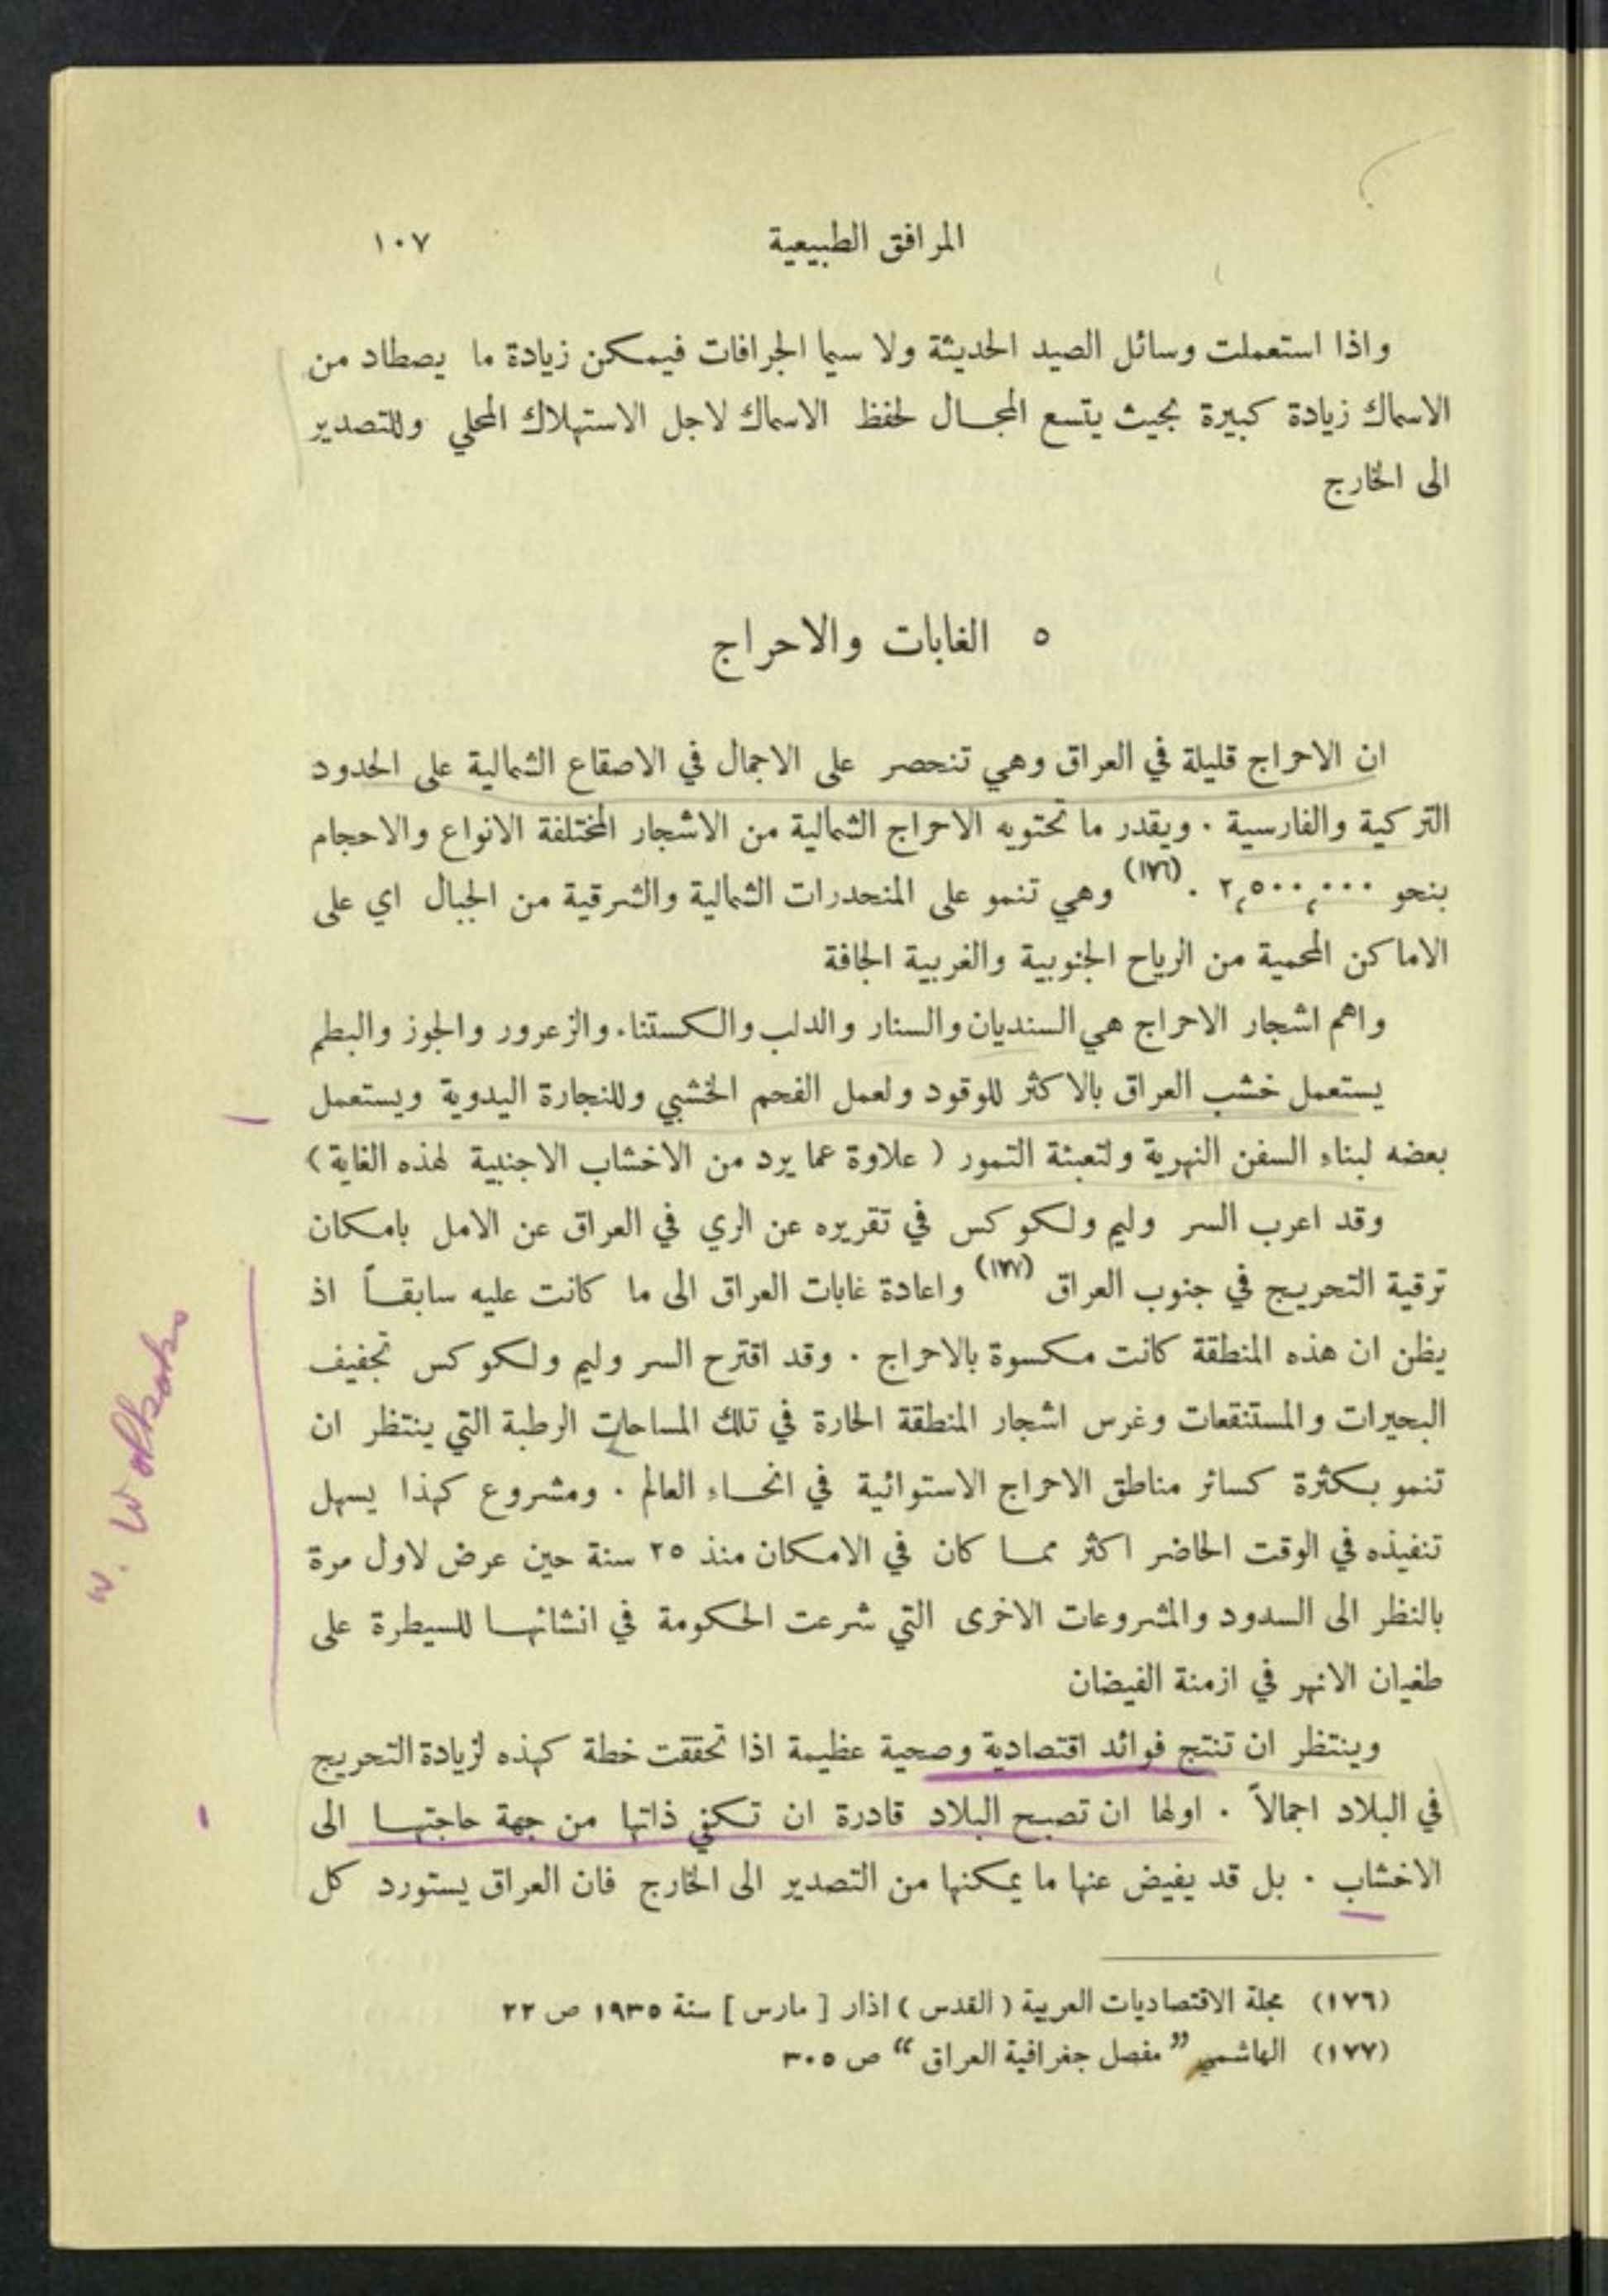 المرافق الطبيعية ١٠٧
واذا استعملت وسائل الصيد الحديثة ولا سيما الجرافات فيمكن زيادة ما يصطاد من
الاسماك زيادة كبيرة بحيث يتسع المجال لحفظ الاسماك لاجل الاستهلاك المحلي وللتصدير
الى الخارج
٥ الغابات والاحراج
ان الاحراج قليلة في العراق وهي تنحصر على الاجمال في الاصقاع الشمالية على الحدود
التركية والفارسية . ويقدر ما تحتويه الاحراج الشمالية من الاشجار المختلفة الانواع والاحجام
بنحو ٢,٥٠٠,٠٠٠ .(١٧٦) وهي تنمو على المنحدرات الشمالية والشرقية من الجبال اي على
الاماكن المحمية من الرياح الجنوبية والغربية الجافة
واهم اشجار الاحراج هي السنديان والسنار والدلب والكستناء والزعرور والجوز والبطم
يستعمل خشب العراق بالاكثر للوقود ولعمل الفحم الخشبي وللنجارة اليدوية ويستعمل
بعضه لبناء السفن النهرية ولتعبئة التمور ( علاوة عما يرد من الاخشاب الاجنبية لهذه الغاية )
وقد اعرب السر وليم ولكوكس في تقريره عن الري في العراق عن الامل بامكان
ترقية التحريج في جنوب العراق (١٧٧) واعادة غابات العراق الى ما كانت عليه سابقاً اذ
يظن ان هذه المنطقة كانت مكسوة بالاحراج . وقد اقترح السر وليم ولكوكس تجفيف
البحيرات والمستنقعات وغرس اشجار المنطقة الحارة في تلك المساحات الرطبة التي ينتظر ان
تنمو بكثرة كسائر مناطق الاحراج الاستوائية في انحاء العالم . ومشروع كهذا يسهل
تنفيذه في الوقت الحاضر اكثر مما كان في الامكان منذ ٢٥ سنة حين عرض لاول مرة
بالنظر الى السدود والمشروعات الاخرى التي شرعت الحكومة في انشائها للسيطرة على
طغيان الانهر في ازمنة الفيضان
وينتظر ان تنتج فوائد اقتصادية وصحية عظيمة اذا تحققت خطة كهذه لزيادة التحريج
في البلاد اجمالاً . اولها ان تصبح البلاد قادرة ان تكفي ذاتها من جهة حاجتها الى
الاخشاب . بل قد يفيض عنها ما يمكنها من التصدير الى الخارج فان العراق يستورد كل
(١٧٦) مجلة الاقتصاديات العربية ( القدس ) اذار [ مارس ] سنة ١٩٣٥ ص ٢٢
(١٧٧) الهاشمي ” مفصل جغرافية العراق “ ص ٣٠٥